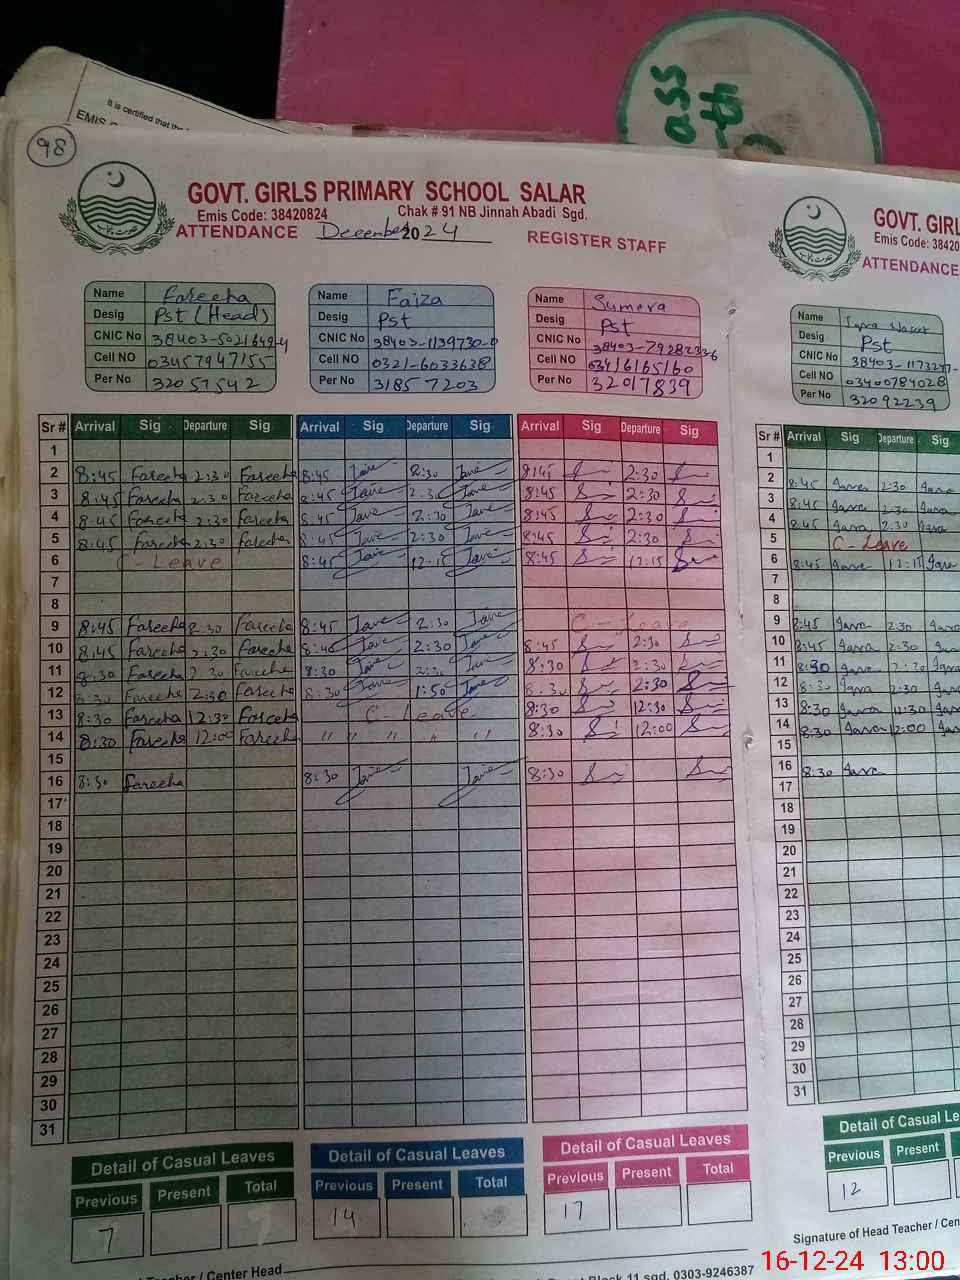 ass
th
It is certified that the
EMIS
98
GOVT. GIRLS PRIMARY SCHOOL SALAR
Emis Code: 38420824 Chak # 91 NB Jinnah Abadi Sgd.
ATTENDANCE December 2024 REGISTER STAFF
Name Fareeha
Desig Pst (Head)
CNIC No 38403-5021649-4
Cell NO 03457947155
Per No 32057542
Name Faiza
Desig Pst
CNIC No 38403-1139730-0
Cell NO 0321-6033638
Per No 31857203
Name Sumera
Desig Pst
CNIC No 38403-7928233-6
Cell NO 03416165160
Per No 32017839
Sr # Arrival Sig Departure Sig Arrival Sig Departure Sig Arrival Sig Departure Sig
1
2 8:45 Fareeha 2:30 Fareeha 8:45 2:30 8:45 2:30
3 8:45 Fareeha 2:30 Fareeha 8:45 2:30 8:45 2:30
4 8:45 Fareeha 2:30 Fareeha 8:45 2:30 8:45 2:30
5 8:45 Fareeha 2:30 Fareeha 8:45 2:30 8:45 2:30
6 C-Leave 8:45 12:15 8:45 12:15
7
8
9 8:45 Fareeha 2:30 Fareeha 8:45 2:30 C-Leave
10 8:45 Fareeha 2:30 Fareeha 8:40 2:30 8:45 2:30
11 8:30 Fareeha 2:30 Fareeha 8:30 2:30 8:30 2:30
12 8:30 Fareeha 2:30 Fareeha 8:30 1:50 8:30 2:30
13 8:30 Fareeha 12:30 Fareeha C-Leave 8:30 12:30
14 8:30 Fareeha 12:00 Fareeha " " " " " 8:30 12:00
15
16 8:30 Fareeha 8:30 8:30
17
18
19
20
21
22
23
24
25
26
27
28
29
30
31
Detail of Casual Leaves Detail of Casual Leaves Detail of Casual Leaves
Previous Present Total Previous Present Total Previous Present Total
7 14 17
Teacher / Center Head
Block 11 sgd. 0303-9246387
GOVT. GIRL
Emis Code: 3842
ATTENDANCE
Name Iqra
Desig Pst
CNIC No 38403-1173247-
Cell NO 03400784028
Per No 32092239
Sr # Arrival Sig Departure Sig
1
2 8:45 2:30
3 8:45 2:30
4 8:45 2:30
5 C-Leave
6 8:45 12:15
7
8
9 8:45 2:30
10 8:45 2:30
11 8:30 2:30
12 8:30 2:30
13 8:30 12:30
14 8:30 12:00
15
16 8:30
17
18
19
20
21
22
23
24
25
26
27
28
29
30
31
Detail of Casual Le
Previous Present
12
Signature of Head Teacher / Cen
16-12-24 13:00